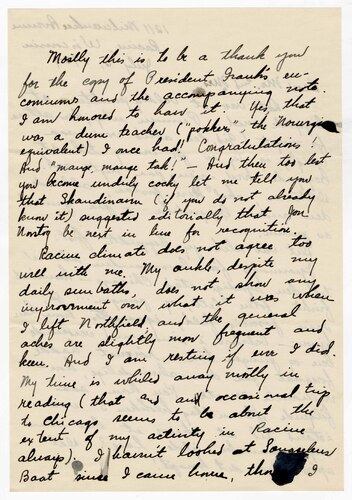 Moilly this is to be a thank you
for the copy of President Frank's en-
comiums and the accompanying note.
I am honored to have it. Yes that
was a dum teacher ("pokker", the Norwegn
equivalent) I once had! Congratulations!
And "mange, mange tak!" — And then too lest
you become unduly cocky let me tell you
that Skandinaven (if you do not already
know it) suggested editorially that Jon!
Norstog be next in line for recognition.
Racine climate does not agree too
well with me. My ankle, despite my
daily sunbaths, does not show any
improvement over what it was when
I left Northfield, and the general
aches are slightly more frequent and
keen. And I am resting if ever I did.
My time is whiled away mostly in
reading (that and an occasional trip
to Chicago seems to be about the
extent of my activity in Racine
always). I haven't looked at
Boat since I came home, tho I